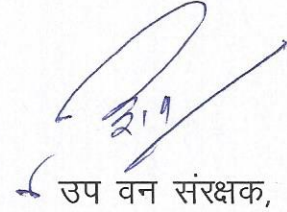 उप वन संरक्षक,